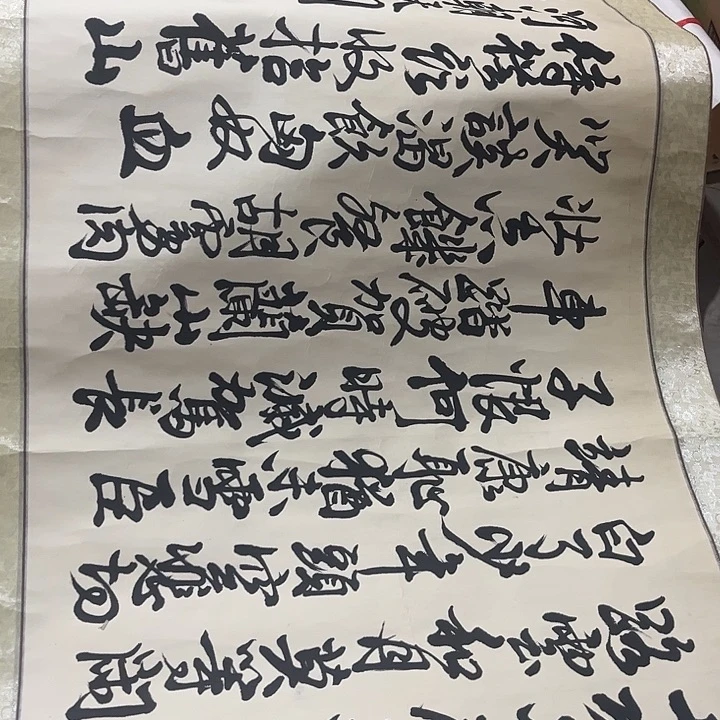 路雲和月莫等閒
白了少年頭空悲切
靖康恥猶未雪臣
子恨何時滅駕長
車踏破賀蘭山缺
壯志飢餐胡虜肉
笑談渴飲匈奴血
待從頭收拾舊山
河朝天